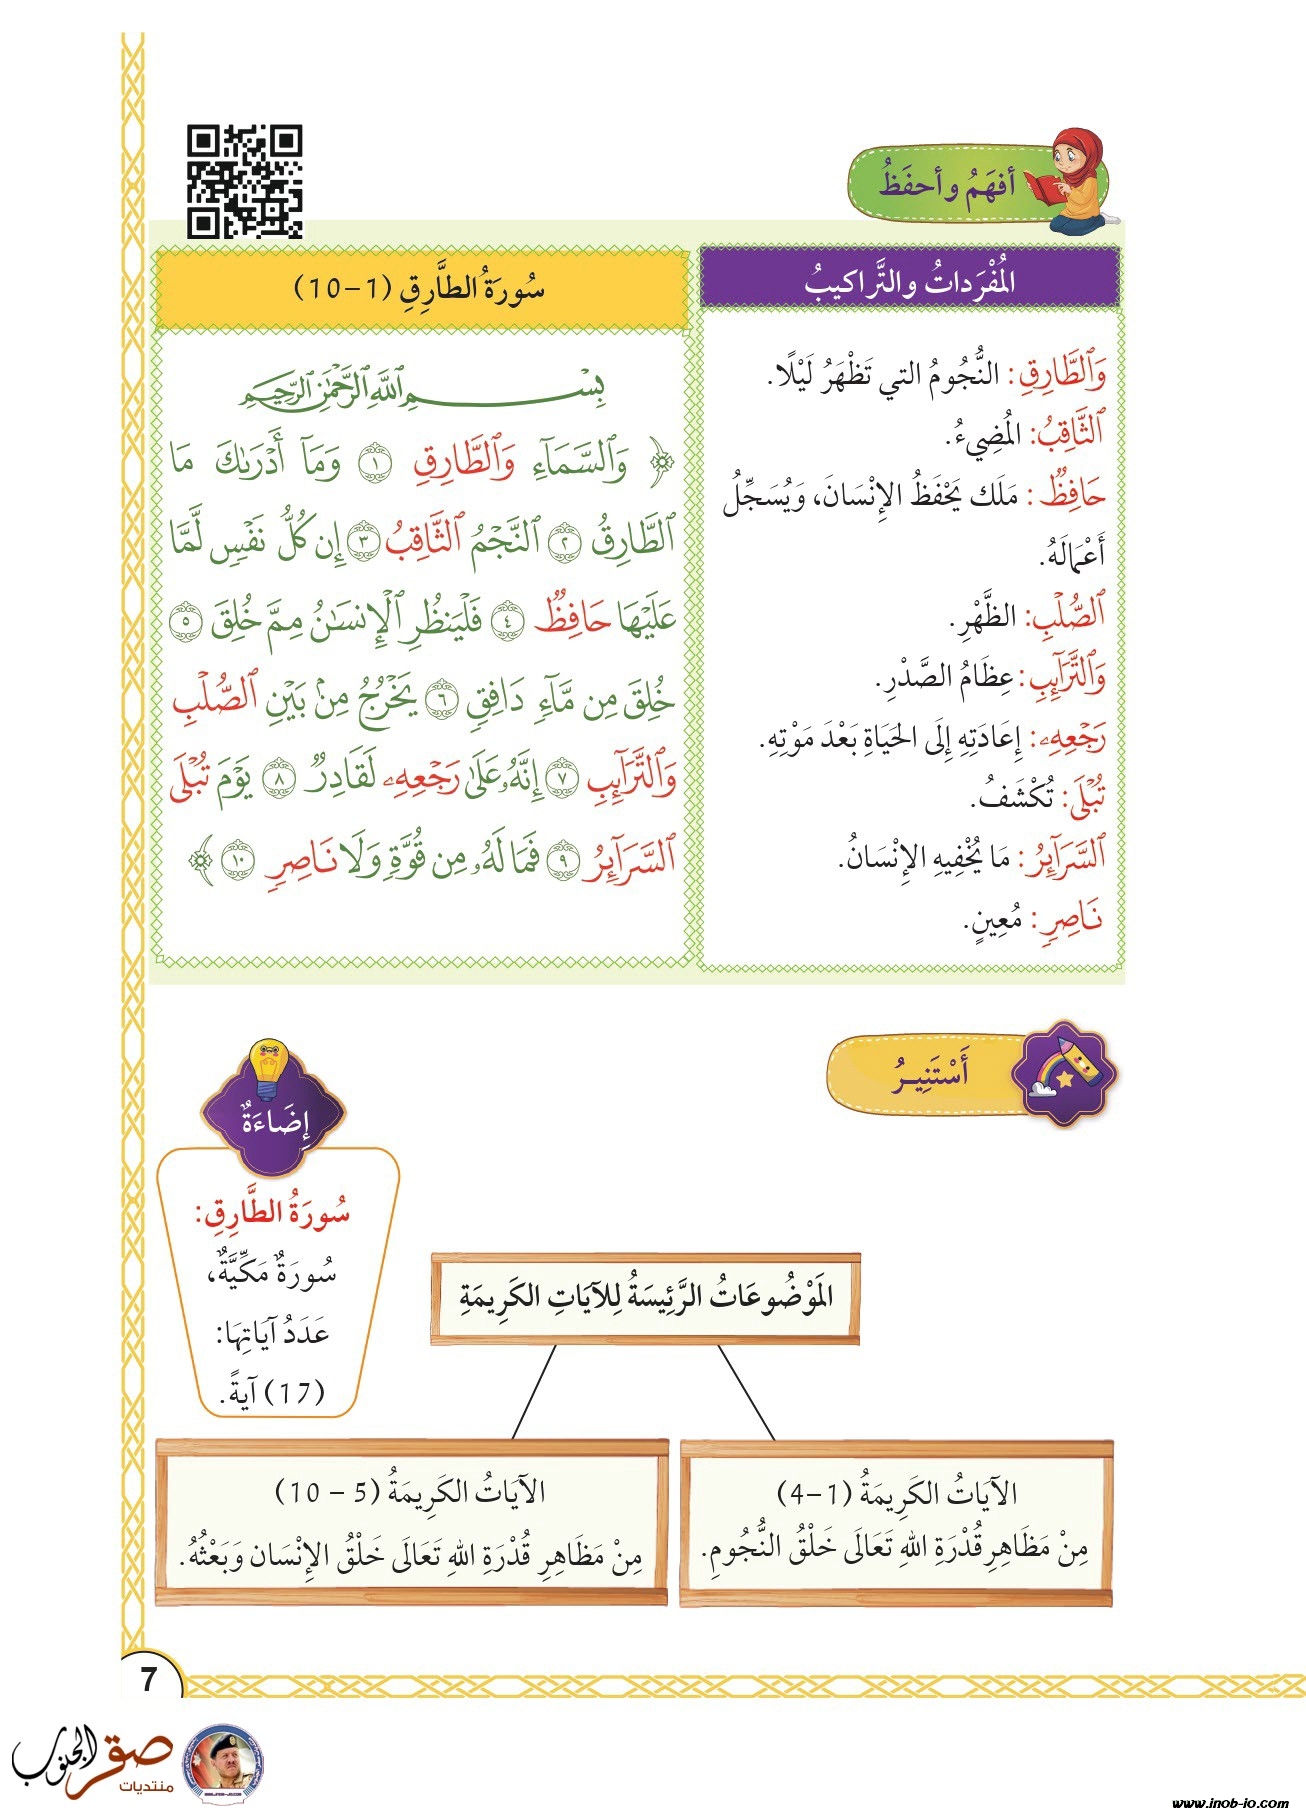 أفهَمُ وأحفَظُ
المُفْرَداتُ والتَّراكيبُ
وَٱلطَّارِقِ: النُّجُومُ التي تَظْهَرُ لَيْلًا.
ٱلثَّاقِبُ: المُضِيءُ.
حَافِظٌ: مَلَك يَحْفَظُ الإِنْسَانَ، وَيُسَجِّلُ
أَعْمَالَهُ.
ٱلصُّلْبِ: الظَّهْرِ.
وَٱلتَّرَآئِبِ: عِظَامُ الصَّدْرِ.
رَجْعِهِۦ: إِعَادَتِهِ إِلَى الحَيَاةِ بَعْدَ مَوْتِهِ.
تُبْلَى: تُكْشَفُ.
ٱلسَّرَآئِرُ: مَا يُخْفِيهِ الإِنْسَانُ.
نَاصِرٍ: مُعِينٍ.
سُورَةُ الطَّارِقِ (1-10)
بِسْمِ ٱللَّهِ ٱلرَّحْمَٰنِ ٱلرَّحِيمِ
﴿ وَٱلسَّمَآءِ وَٱلطَّارِقِ ١ وَمَآ أَدْرَىٰكَ مَا
ٱلطَّارِقُ ٢ ٱلنَّجْمُ ٱلثَّاقِبُ ٣ إِن كُلُّ نَفْسٍ لَّمَّا
عَلَيْهَا حَافِظٌ ٤ فَلْيَنظُرِ ٱلْإِنسَٰنُ مِمَّ خُلِقَ ٥
خُلِقَ مِن مَّآءٍ دَافِقٍ ٦ يَخْرُجُ مِنۢ بَيْنِ ٱلصُّلْبِ
وَٱلتَّرَآئِبِ ٧ إِنَّهُۥ عَلَىٰ رَجْعِهِۦ لَقَادِرٌ ٨ يَوْمَ تُبْلَى
ٱلسَّرَآئِرُ ٩ فَمَا لَهُۥ مِن قُوَّةٍ وَلَا نَاصِرٍ ١٠ ﴾
أَسْتَنِيرُ
إِضَاءَةٌ
سُورَةُ الطَّارِقِ:
سُورَةٌ مَكِّيَّةٌ،
عَدَدُ آيَاتِهَا:
(17) آيَةً.
المَوْضُوعَاتُ الرَّئِيسَةُ لِلآيَاتِ الكَرِيمَةِ
الآيَاتُ الكَرِيمَةُ (1-4)
مِنْ مَظَاهِرِ قُدْرَةِ اللهِ تَعَالَى خَلْقُ النُّجُومِ.
الآيَاتُ الكَرِيمَةُ (5 - 10)
مِنْ مَظَاهِرِ قُدْرَةِ اللهِ تَعَالَى خَلْقُ الإِنْسَان وَبَعْثُهُ.
7
صقر الجنوب
منتديات
www.jnob-jo.com